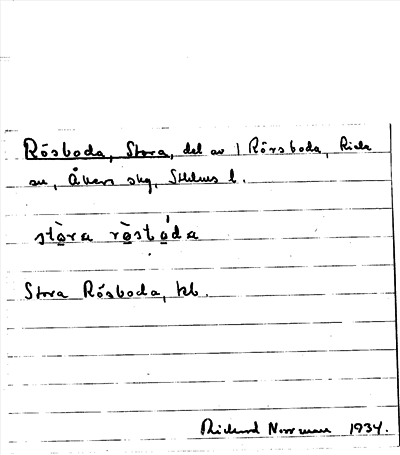 Rösboda, Stora, del av 1 Rörsboda, Riala
sn, Åkers skg, Sthlms l.
stòra rö̀sbo̤´da
Stora Rösboda, kb.
Richard Norrman 1934.